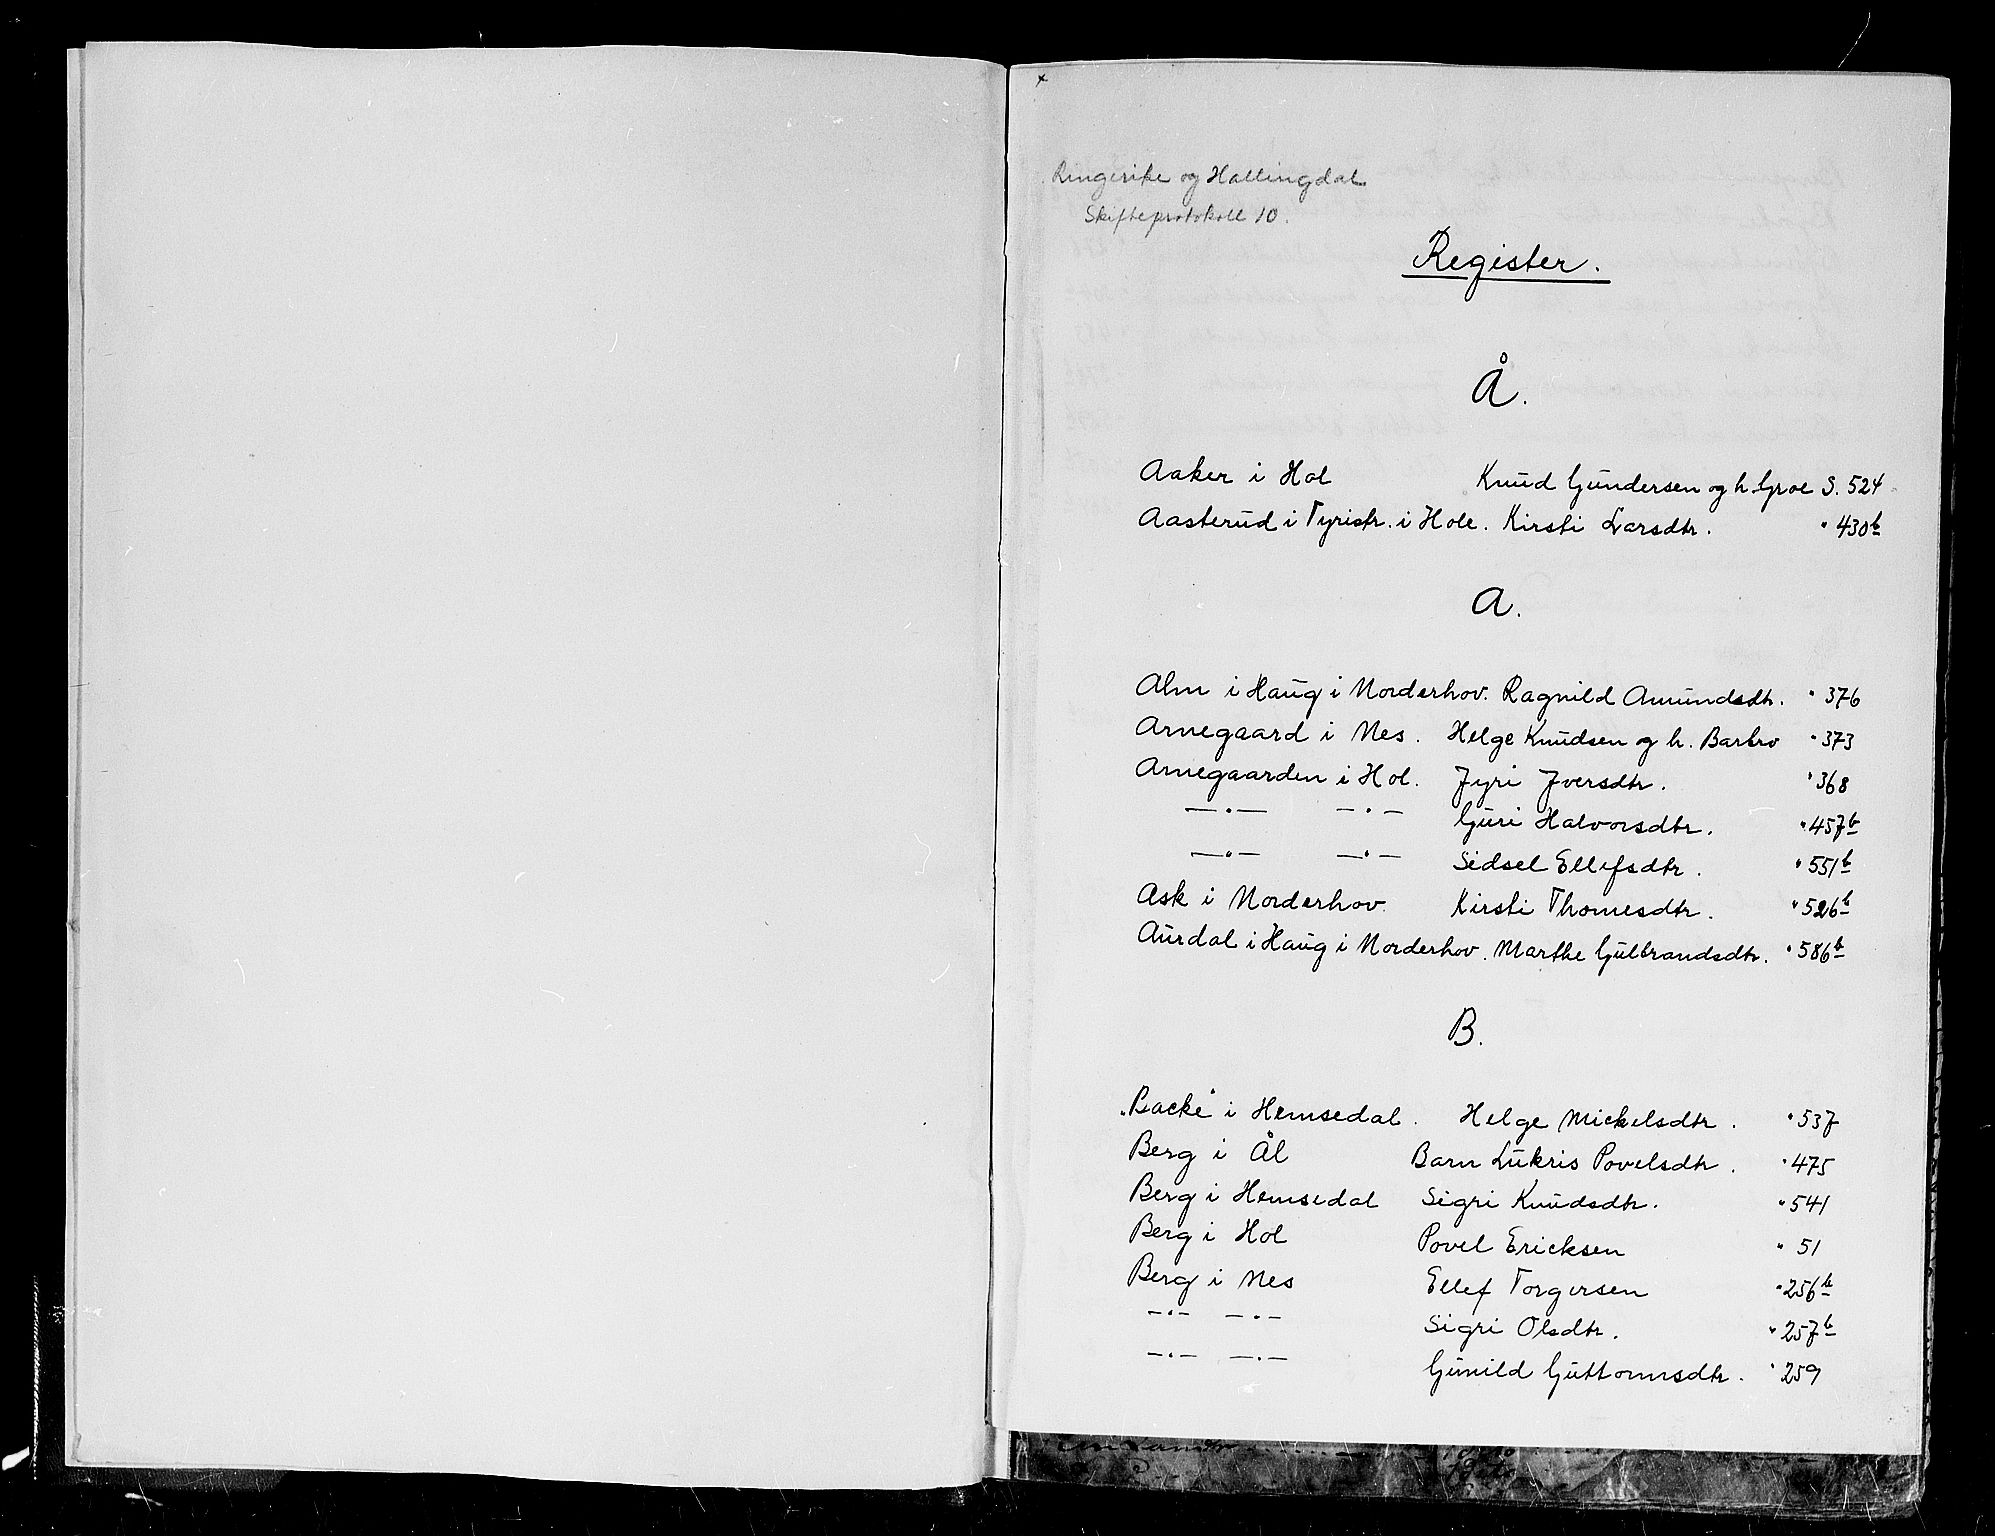 Ringerike og Hallingdal
Skifteprotokoll 10.
Register.
Å.
Aaker i Hol Knud Gundersen og h. Groe S. 524
Aasterud i Tyristr. i Hole. Kirsti Larsdtr. " 430b
A.
Alm i Haug i Norderhov. Ragnild Amundsdtr. " 376
Arnegaard i Nes. Helge Knudsen og h. Barbro " 373
Arnegaarden i Hol. Jyri Iversdtr. " 368
—"— —"— Guri Halvorsdtr. " 457b
—"— —"— Sidsel Ellefsdtr. " 551b
Ask i Norderhov. Kirsti Thomesdtr. " 526b
Aurdal i Haug i Norderhov. Marthe Gulbrandsdtr. " 586b
B.
"Backe" i Hemsedal. Helge Mickelsdtr. " 537
Berg i Ål Barn Lukris Povelsdtr. " 475
Berg i Hemsedal Sigri Knudsdtr. " 541
Berg i Hol Povel Ericksen " 51
Berg i Nes Ellef Torgersen " 256b
—"— —"— Sigri Olsdtr. " 257b
—"— —"— Gunild Guttormsdtr. " 259